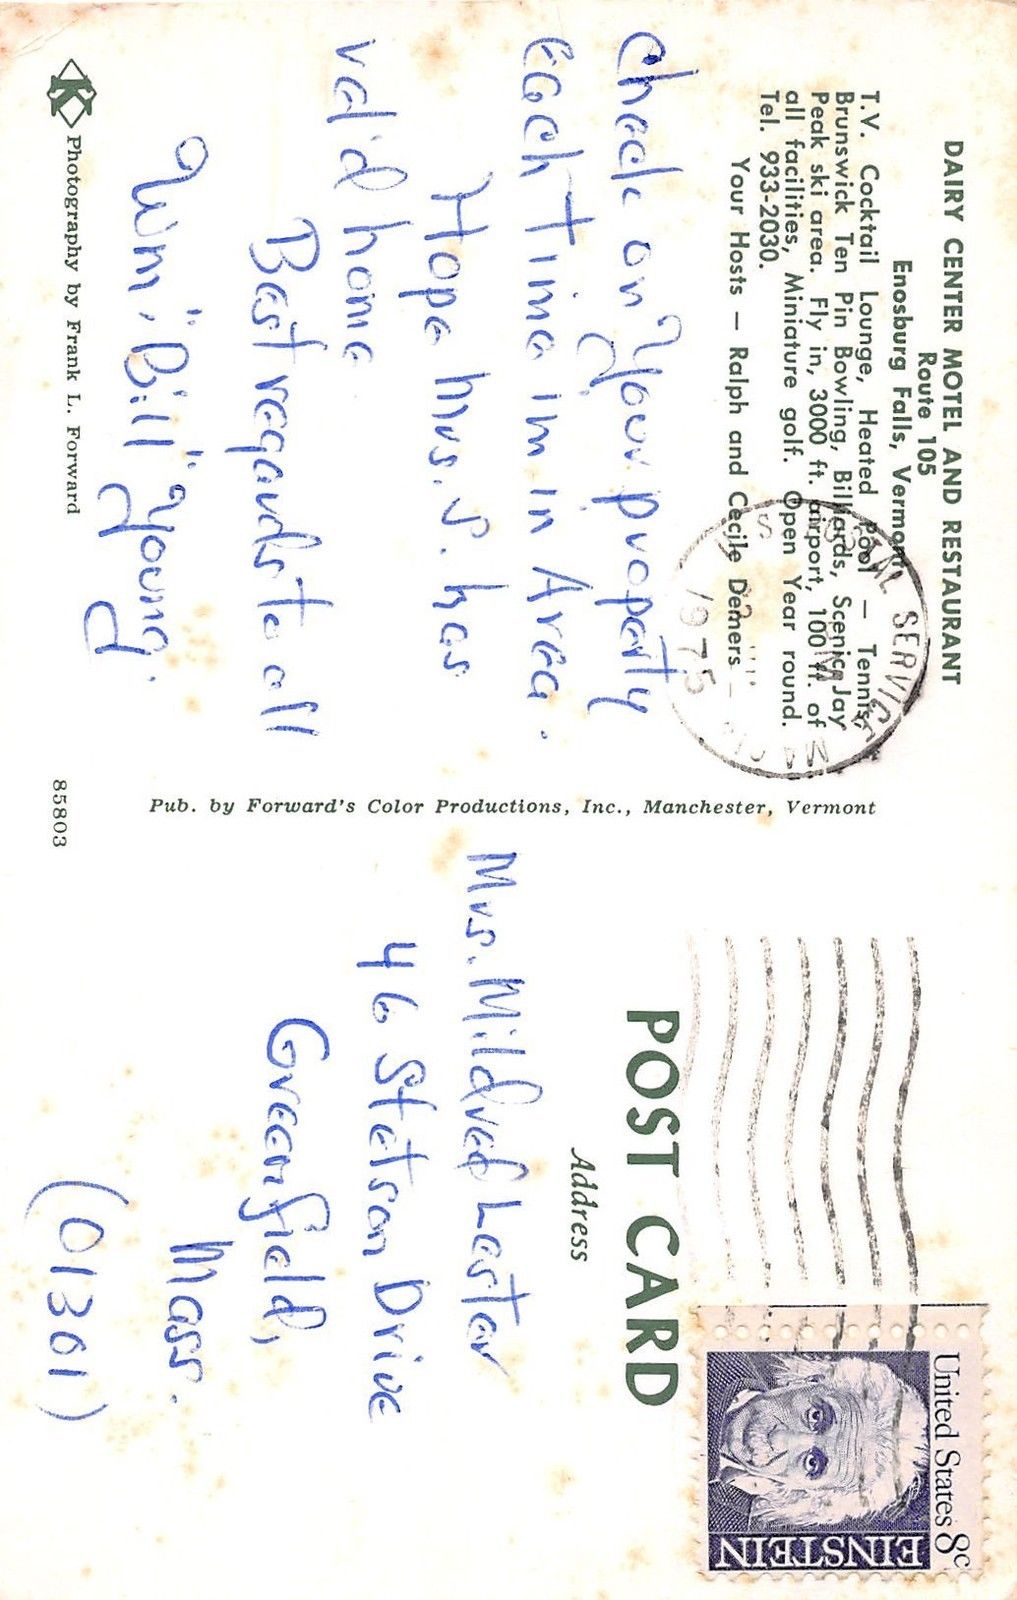 DAIRY CENTER MOTEL AND RESTAURANT
Route 105
Enosburg Falls, Vermont
T.V. Cocktail Lounge, Heated Pool — Tennis,
Brunswick Ten Pin Bowling, Billiards, Scenic Jay
Peak ski area. Fly in, 3000 ft. airport, 100 ft. of
all facilities, Miniature golf. Open Year round.
Tel. 933-2030.
Your Hosts — Ralph and Cecile Demers
Check on your property
Each Time im in Area.
Hope Mrs. S. has
val'd home
Best regards to all
Wm. "Bill" Young.
K Photography by Frank L. Forward
85803
Pub. by Forward's Color Productions, Inc., Manchester, Vermont
SERVICE
1975
POST CARD
Address
Mrs. Mildred Lester
46 Stetson Drive
Greenfield,
Mass.
(01301)
United States 8c
EINSTEIN